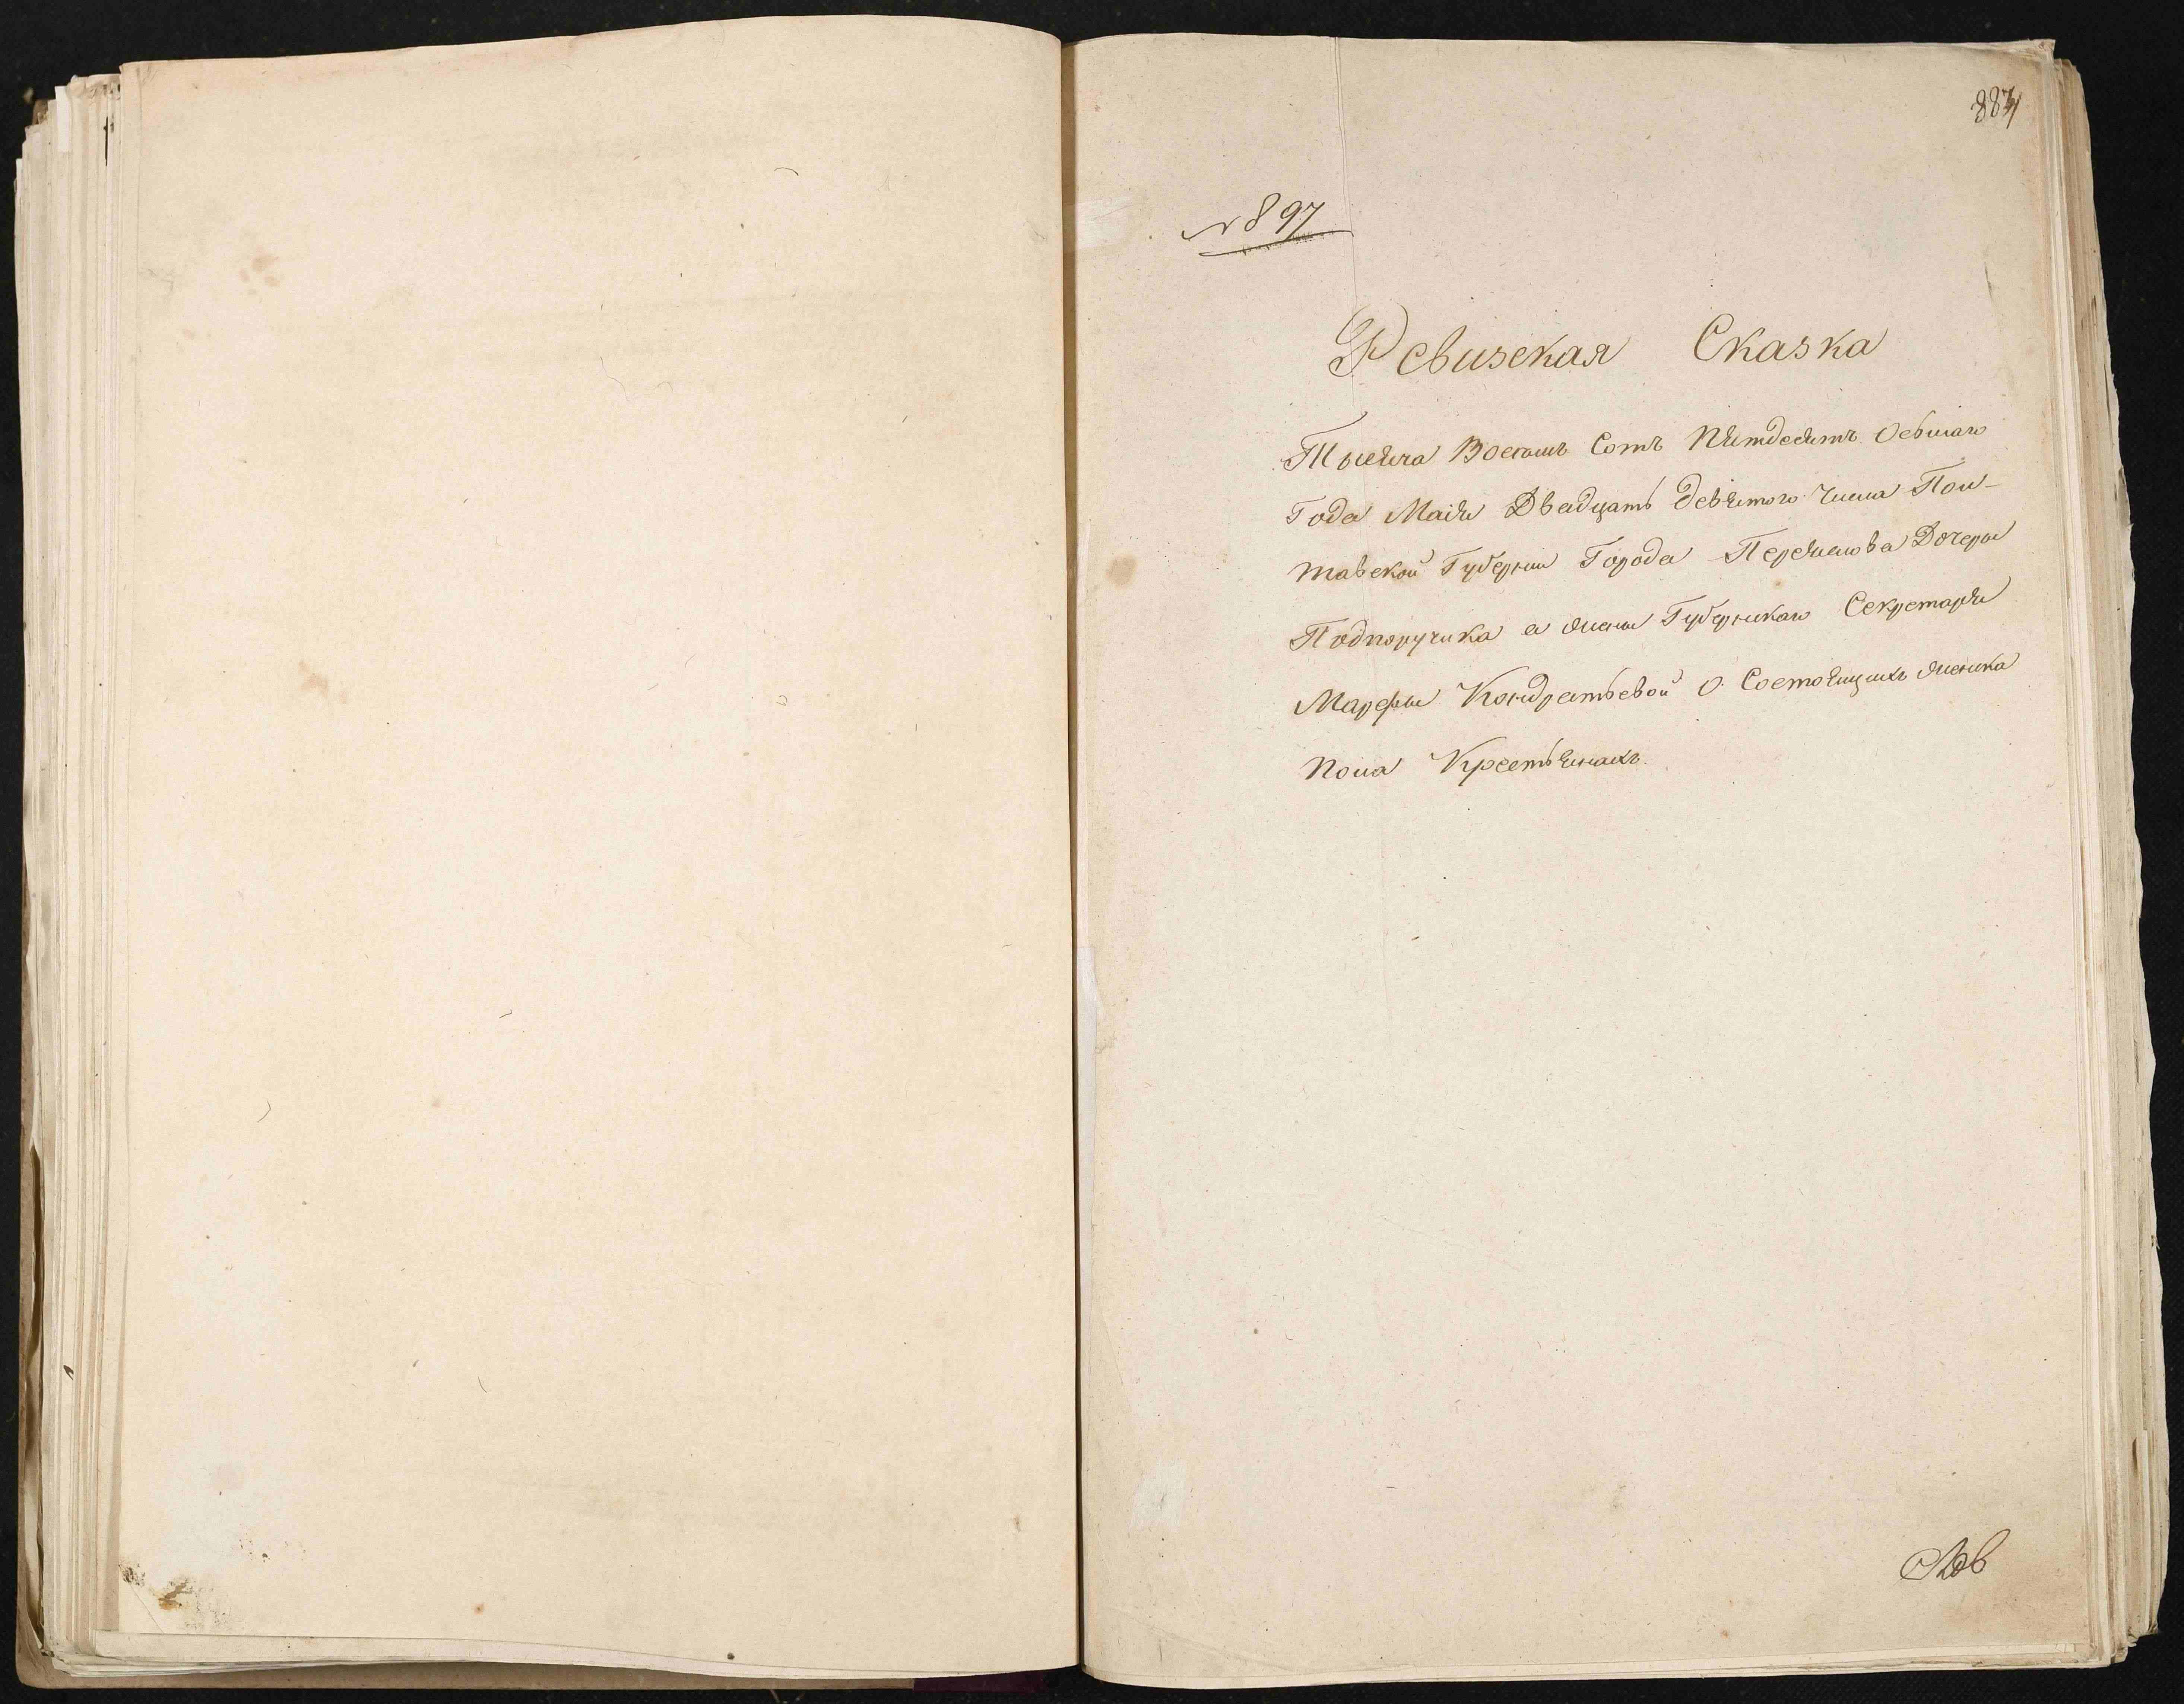 № 897
Ревизская Сказка
Тысяча Восемь Сотъ Пятдесятъ Осьмаго
Года Маія Двадцать девятого Числа Пол-
тавской Губерніи Города Переяслова Дочери
Подпоручика а жены Губернскаго Секретаря
Марфы Кондратьевой о Состоящихъ женска
пола Крестьянахъ.